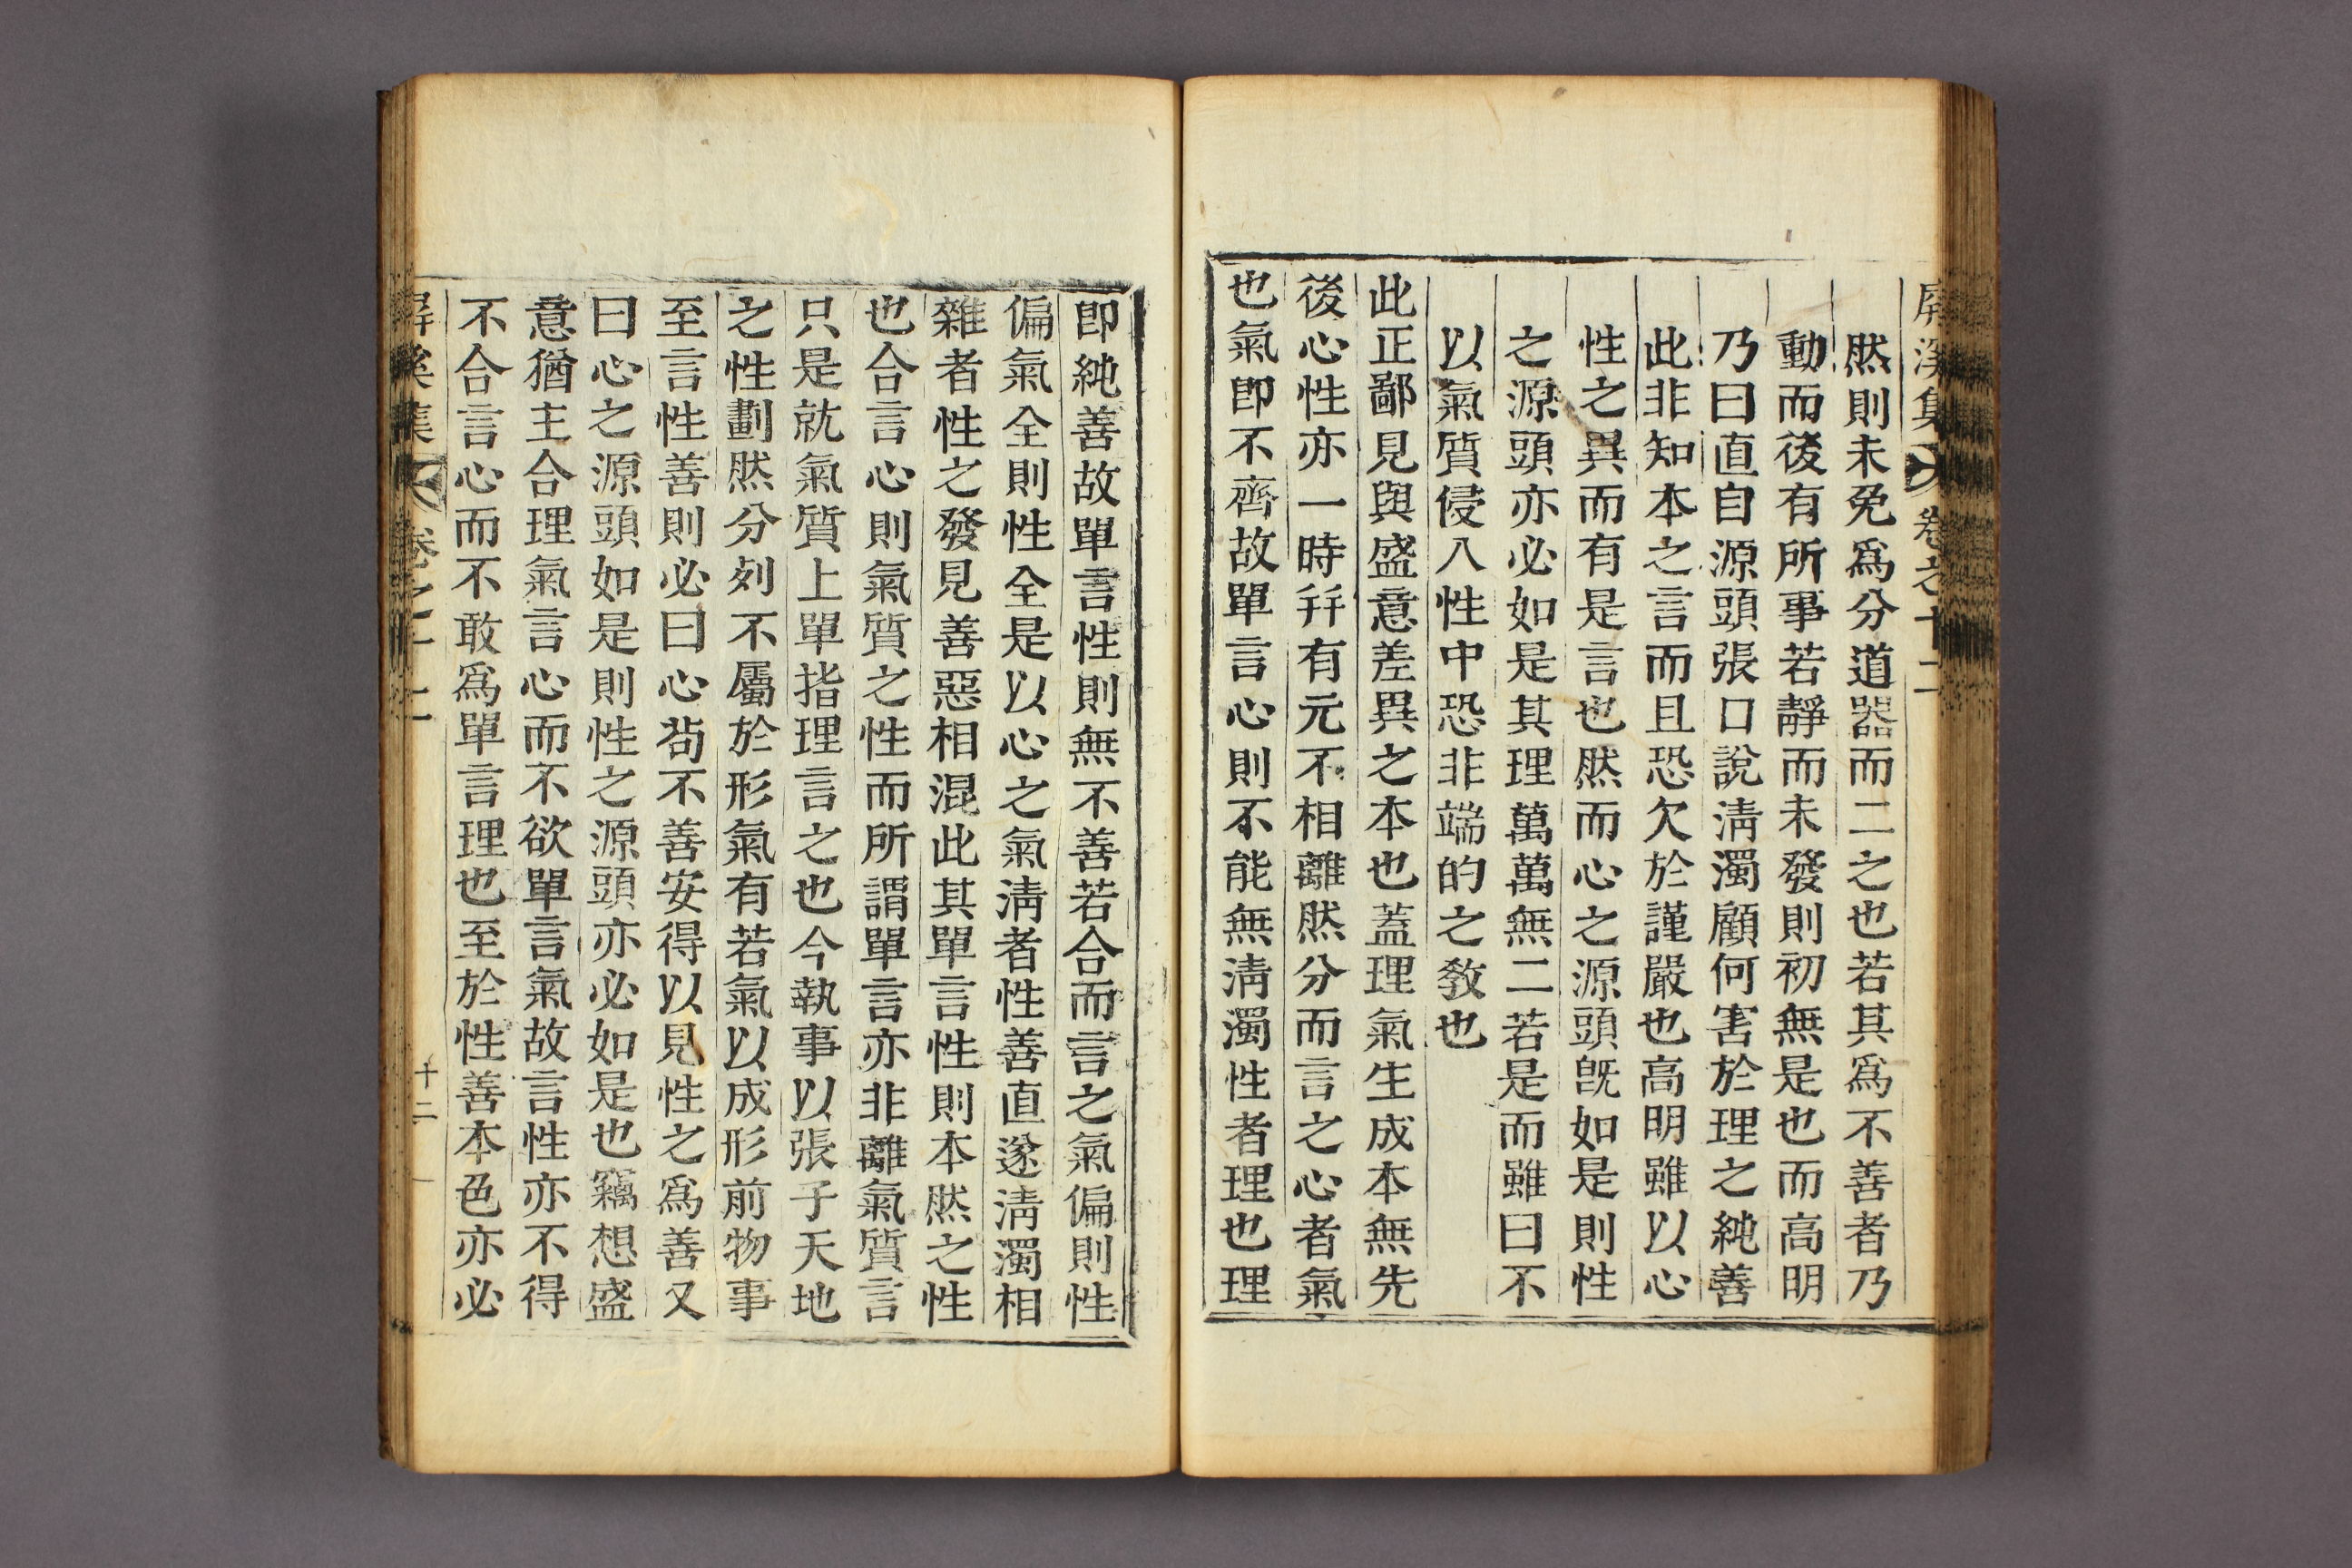 屏溪集 卷之十二
然則未免爲分道器而二之也若其爲不善者乃
動而後有所事若靜而未發則初無是也而高明
乃曰直自源頭張口說淸濁顧何害於理之純善
此非知本之言而且恐欠於謹嚴也高明雖以心
性之異而有是言也然而心之源頭旣如是則性
之源頭亦必如是其理萬萬無二若是而雖曰不
以氣質侵入性中恐非端的之敎也
此正鄙見與盛意差異之本也蓋理氣生成本無先
後心性亦一時幷有元不相離然分而言之心者氣
也氣卽不齊故單言心則不能無淸濁性者理也理
卽純善故單言性則無不善若合而言之氣偏則性
偏氣全則性全是以心之氣淸者性善直遂淸濁相
雜者性之發見善惡相混此其單言性則本然之性
也合言心則氣質之性而所謂單言亦非離氣質言
只是就氣質上單指理言之也今執事以張子天地
之性劃然分刻不屬於形氣有若氣以成形前物事
至言性善則必曰心苟不善安得以見性之爲善又
曰心之源頭如是則性之源頭亦必如是也竊想盛
意猶主合理氣言心而不欲單言氣故言性亦不得
不合言心而不敢爲單言理也至於性善本色亦必
屏溪集 卷之十二 十二